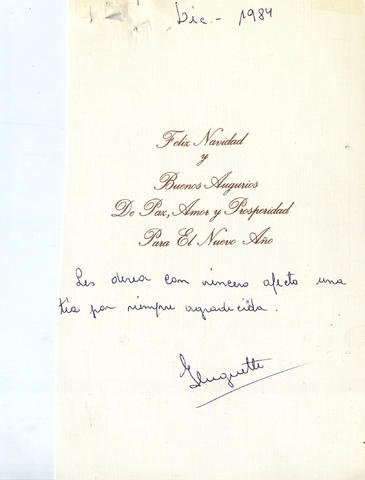 Dic.- 1984
Feliz Navidad
y
Buenos Augurios
De Paz, Amor y Prosperidad
Para El Nuevo Año
Les desea con sincero afecto una
tía por siempre agradecida.
Huguette